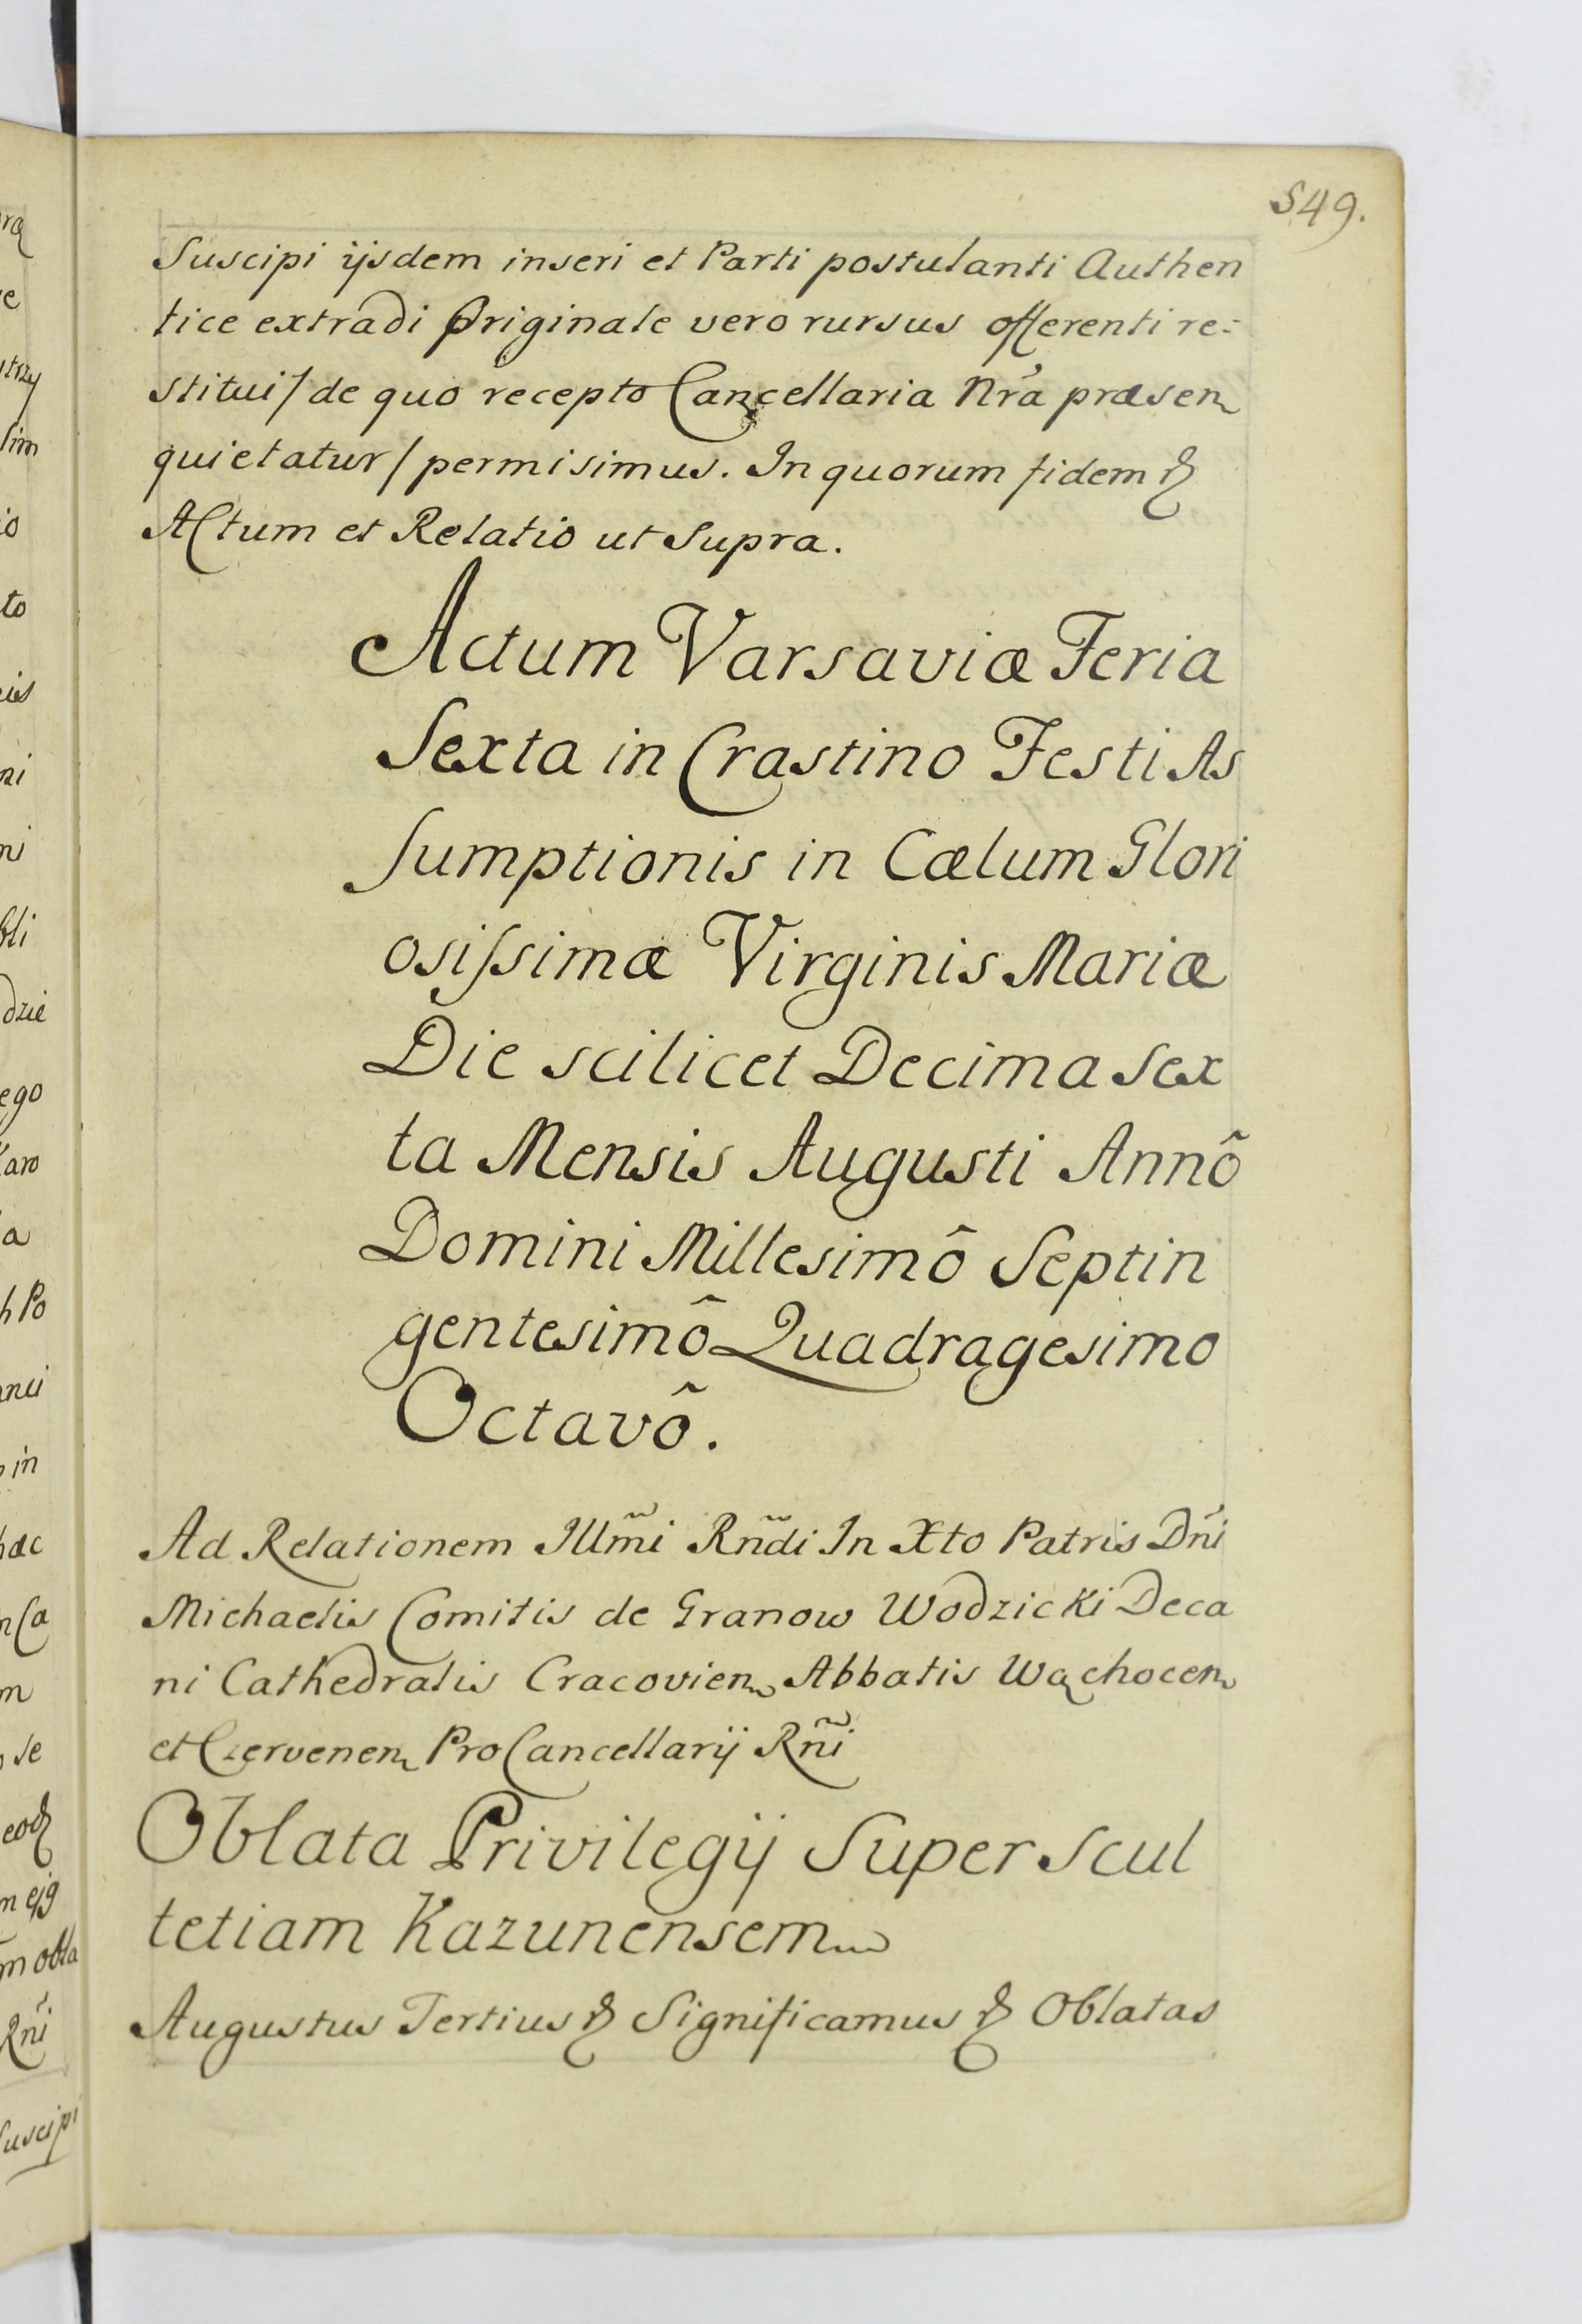 549.
Suscipi ijsdem inseri et Parti postulanti Authen
tice extradi Originale vero rursus offerenti re:
stitui / de quo recepto Cancellaria Nr̃a præsen
quietatur / permisimus. In quorum fidem &
Actum et Relatio ut Supra.
Actum Varsaviæ Feria
Sexta in Crastino Festi As
sumptionis in Cælum Glori
osissimæ Virginis Mariæ
Die scilicet Decima sex
ta Mensis Augusti Annô
Domini Millesimô Septin
gentesimô Quadragesimo
Octavô.
Ad Relationem Illm̃i Rñdi In Xto Patris Dñi
Michaelis Comitis de Granow Wodzicki Deca
ni Cathedralis Cracovien Abbatis Wąchocen
et Czervenen ProCancellarij Rñi
Oblata Privilegij Super Scul
tetiam Kazunensem
Augustus Tertius & Significamus & Oblatas